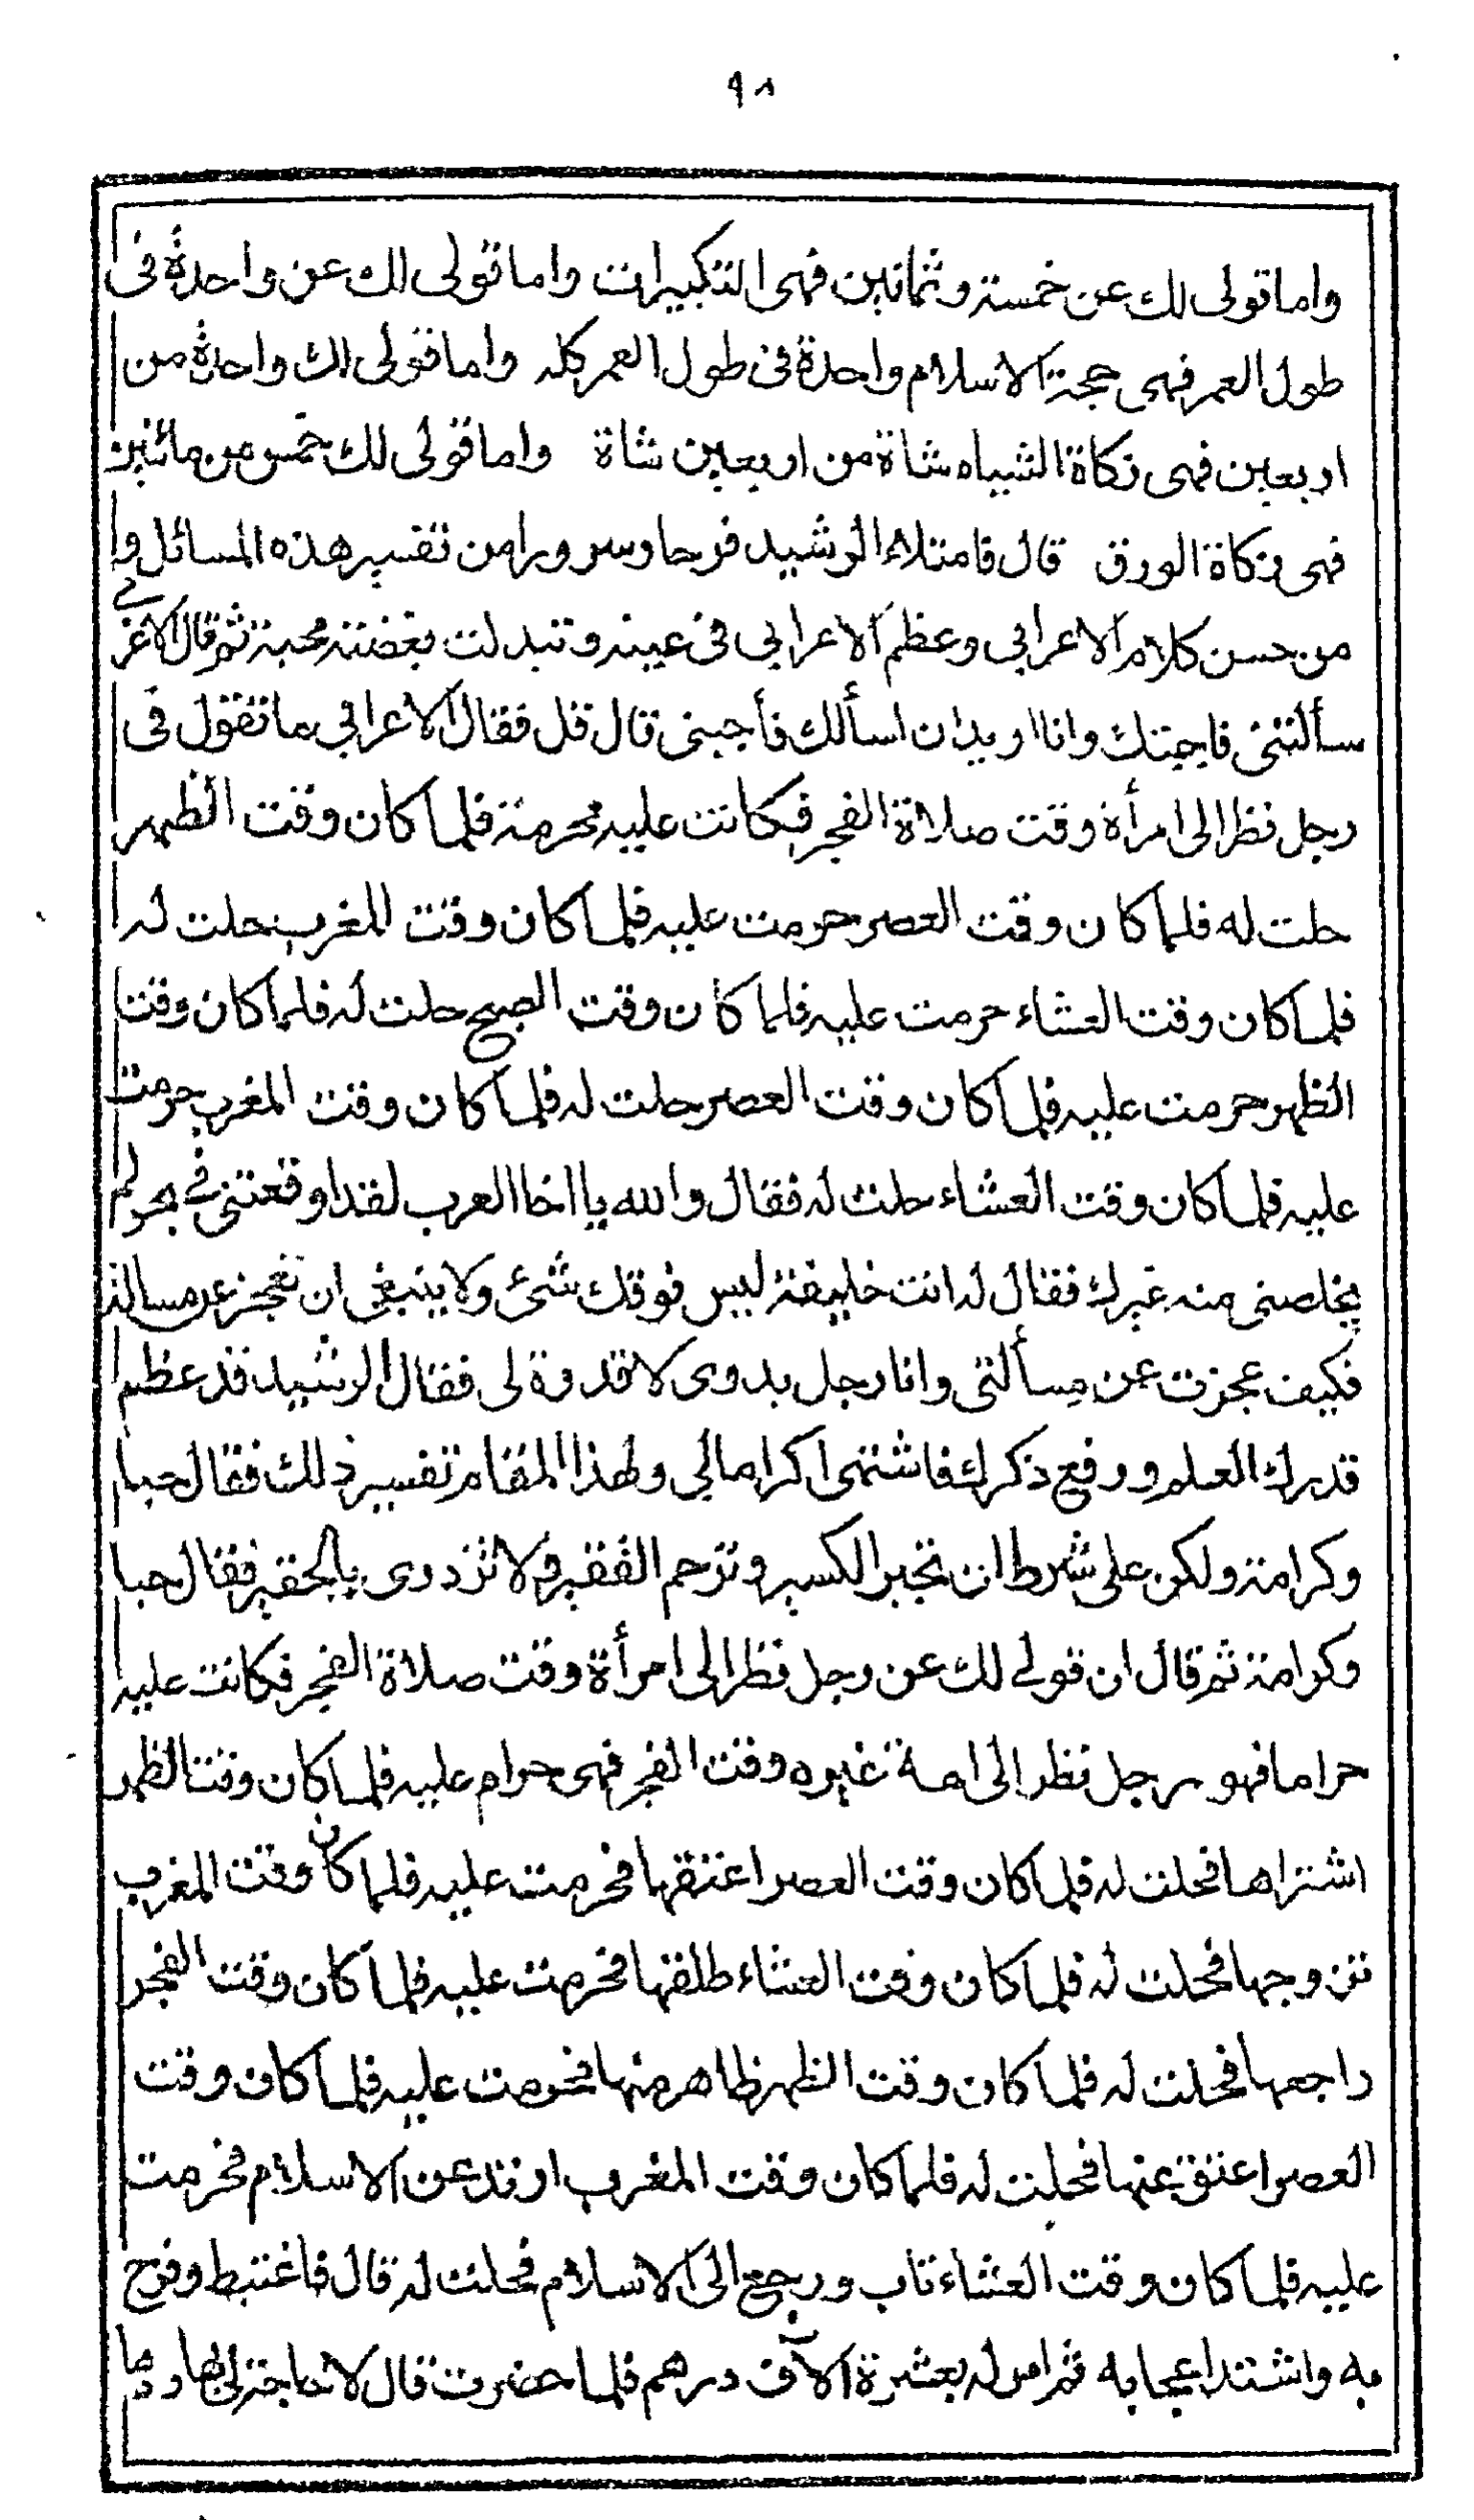 ٩٨
واما قولى لك عن خمسة وثمانين فهى التكبيرات واما قولى لك عن واحدة فى
طول العمر فهى حجة الاسلام واحدة فى طول العمر كله واما قولى لك واحدة من
اربعين فهى زكاة الشياه شاة من اربعين شاة واما قولى لك خمس من مائتين
فهى زكاة الورق قال فامتلاء الرشيد فرحا وسرورا من تفسير هذه المسائل و
من حسن كلام الاعرابي وعظم الاعرابي فى عينه وتبدلت بغضته محبة ثم قال الاعرابي
سألتنى فاجبتك وانا اريد ان اسألك فأجبنى قال قل فقال الاعرابي ما تقول فى
رجل نظر الى امرأة وقت صلاة الفجر فكانت عليه محرمة فلما كان وقت الظهر
حلت له فلما كان وقت العصر حرمت عليه فلما كان وقت المغرب حلت له
فلما كان وقت العشاء حرمت عليه فلما كان وقت الصبح حلت له فلما كان وقت
الظهر حرمت عليه فلما كان وقت العصر حلت له فلما كان وقت المغرب حرمت
عليه فلما كان وقت العشاء حلت له فقال والله يا اخا العرب لقد اوقعتنى في بحر لم
يخلصنى منه غيرك فقال له انت خليفة ليس فوقك شئ ولا ينبغى ان تعجز عن مسالة
فكيف عجزت عن مسألتى وانا رجل بدوى لا قدرة لى فقال الرشيد قد عظم
قدرك العلم ورفع ذكرك فاشتهى اكراما لي ولهذا المقام تفسير ذلك فقال حبا
وكرامة ولكن على شرط ان تجبر الكسير وترحم الفقير ولا تزدرى بالحقير فقال حبا
وكرامة ثم قال ان قولي لك عن رجل نظر الى امرأة وقت صلاة الفجر فكانت عليه
حراما فهو رجل نظر الى امة غيره وقت الفجر فهى حرام عليه فلما كان وقت الظهر
اشتراها فحلت له فلما كان وقت العصر اعتقها فحرمت عليه فلما كان وقت المغرب
تزوجها فحلت له فلما كان وقت العشاء طلقها فحرمت عليه فلما كان وقت الفجر
راجعها فحلت له فلما كان وقت الظهر ظاهر منها فحرمت عليه فلما كان وقت
العصر اعتق عنها فحلت له فلما كان وقت المغرب ارتد عن الاسلام فحرمت
عليه فلما كان وقت العشاء تاب ورجع الى الاسلام فحلت له قال فاغتبط وفرح
به واشتد اعجابه ثم امر له بعشرة الآف درهم فلما حضرت قال لا حاجة لي بها